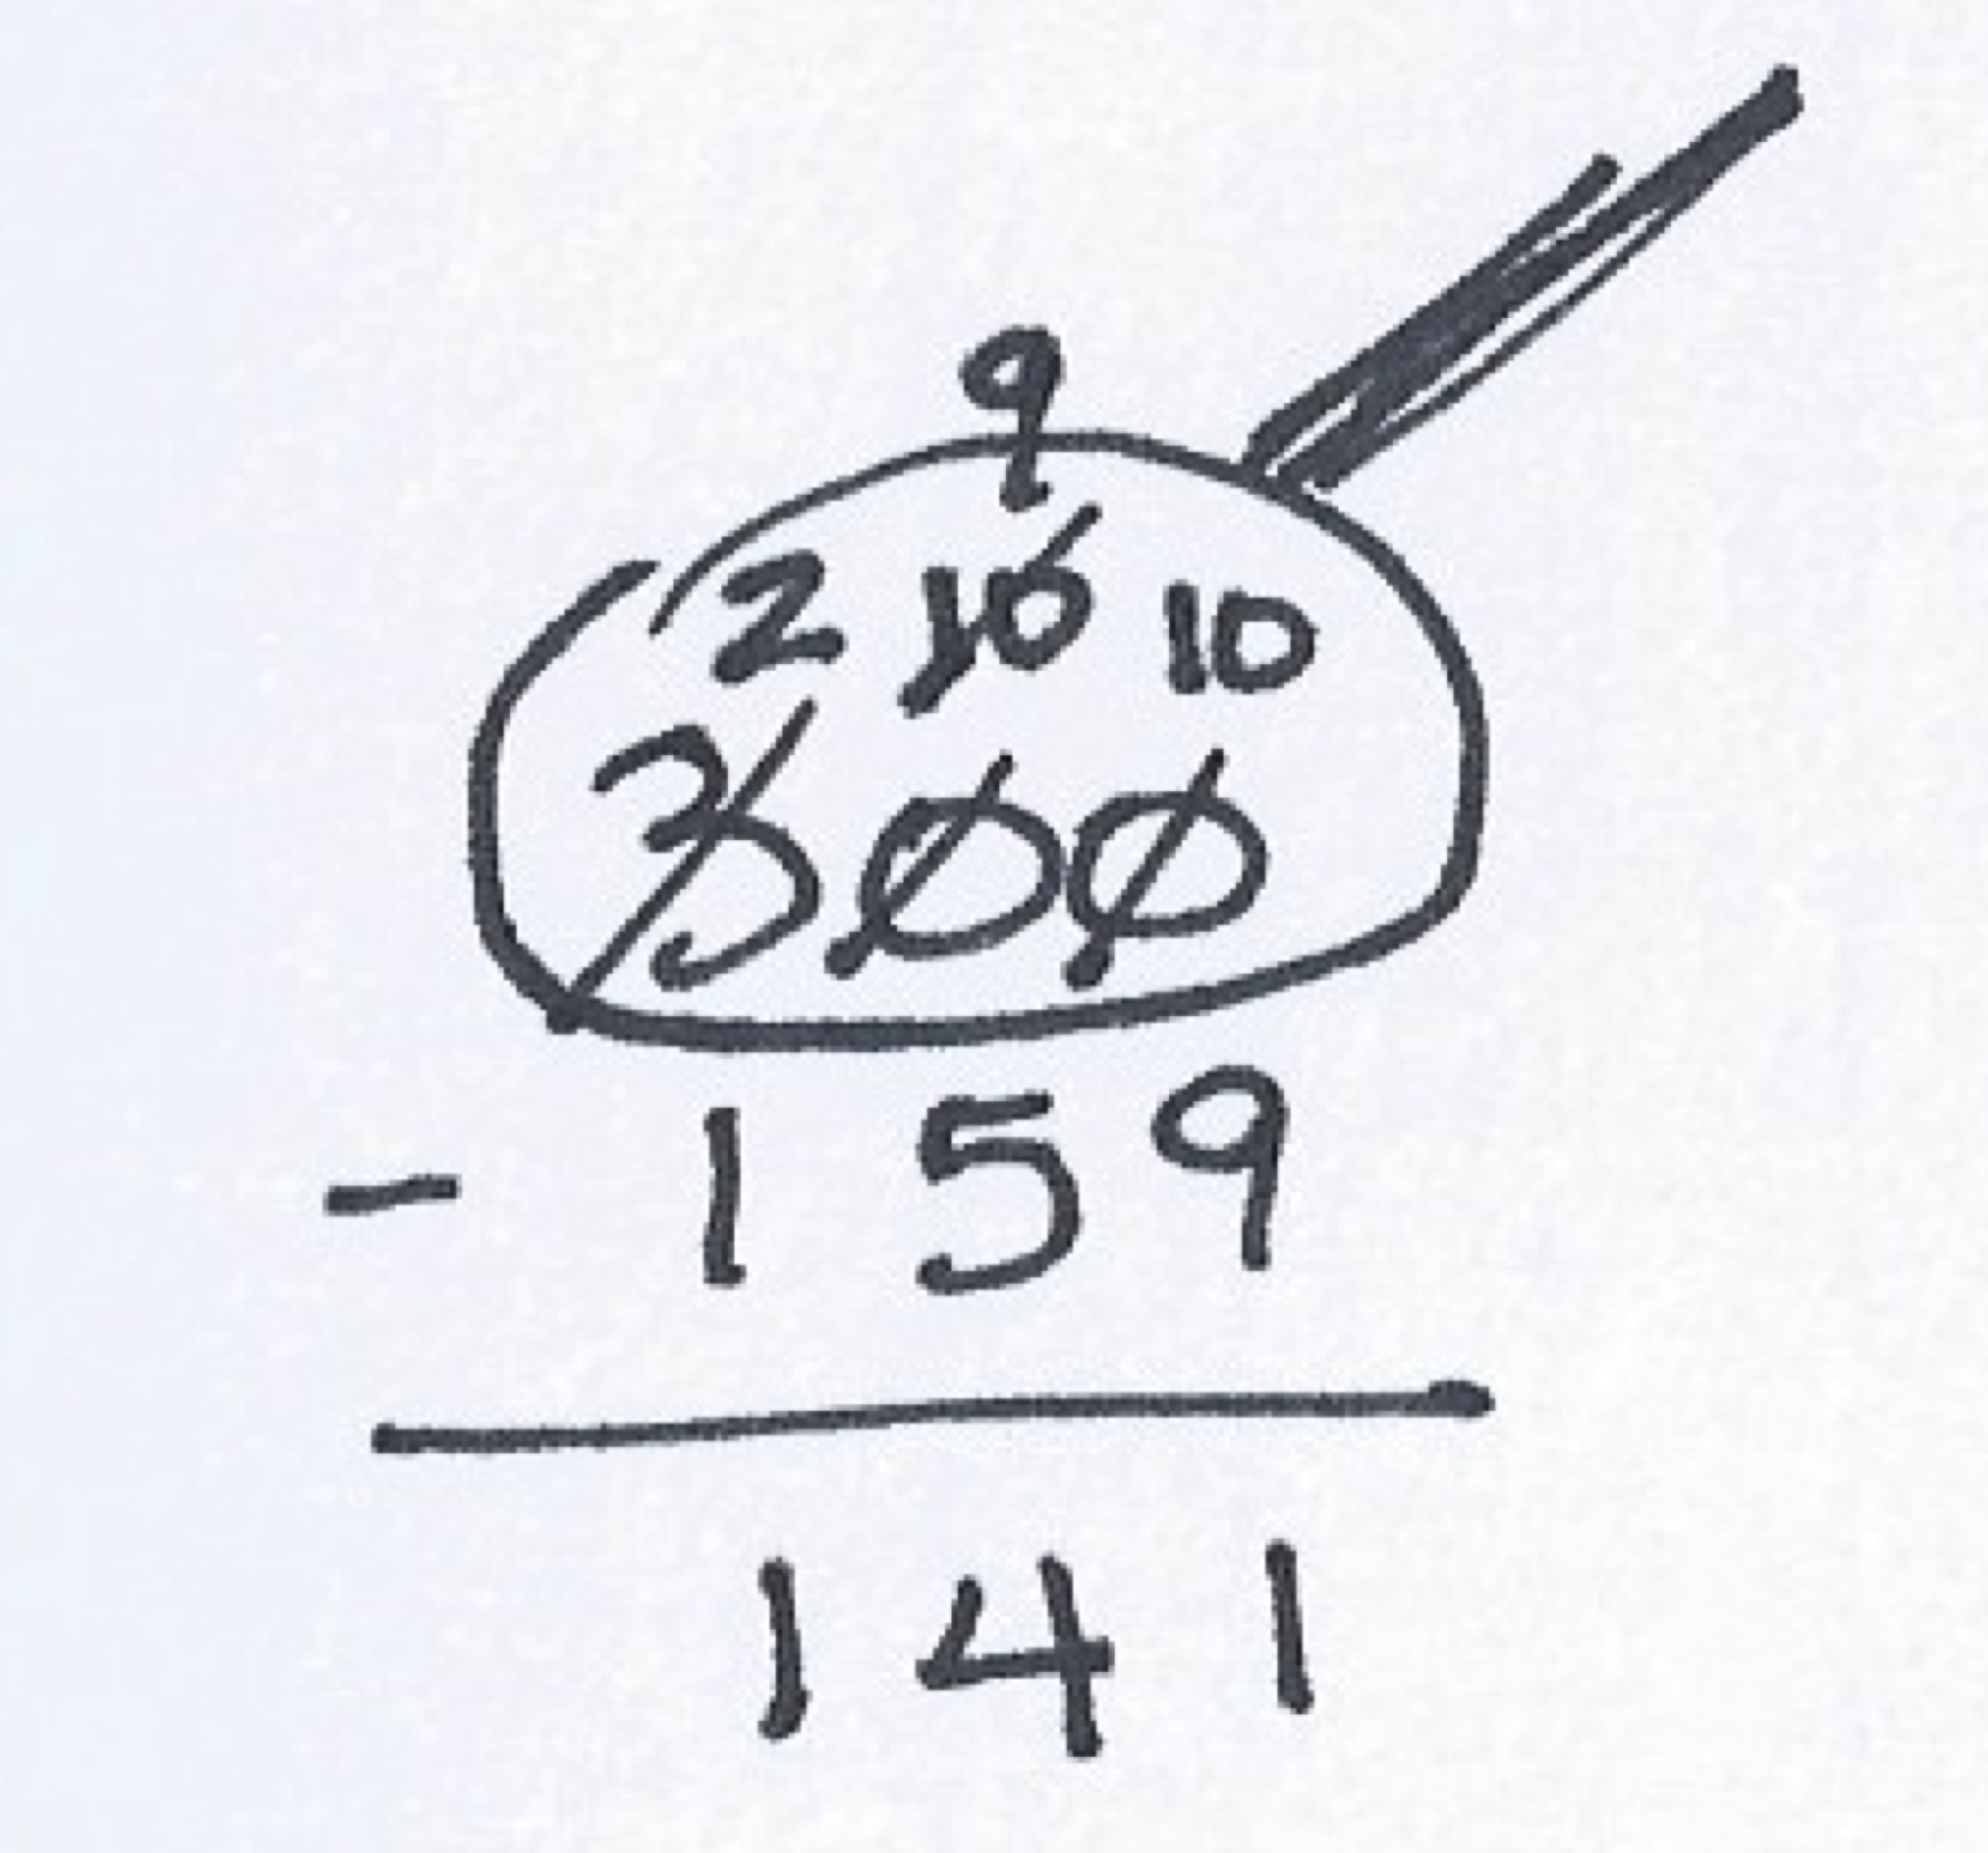 9
2 10 10
300
- 159
141